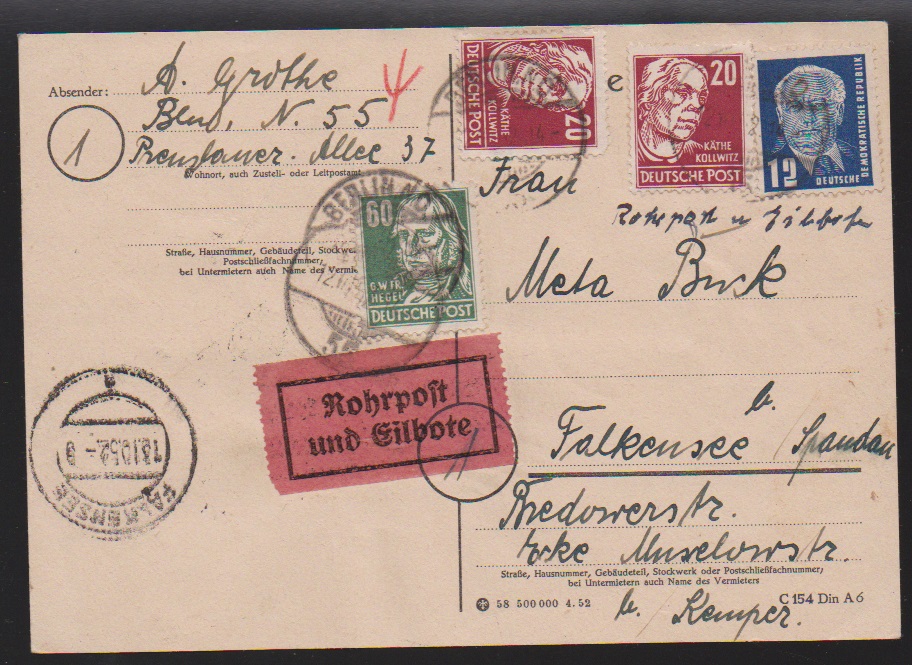 Absender:
A. Grothe
Bln, N. 55
1
Prenzlauer. Allee 37
Wohnort, auch Zustell- oder Leitpostamt
Straße, Hausnummer, Gebäudeteil, Stockwe
Postschließfachnummer,
bei Untermietern auch Name des Vermie
20
KÄTHE
KOLLWITZ
DEUTSCHE POST
e
20
KÄTHE
KOLLWITZ
DEUTSCHE POST
12
DEUTSCHE
DEMOKRATISCHE REPUBLIK
60
G.W.FR.
HEGEL
DEUTSCHE POST
BERLIN N
Rohrpost
und Eilbote
FALKENSEE
13.10.52.-9
a
Frau
Rohrpost u Eilbote
Meta Buck
Falkensee b. Spandau
Bredowerstr.
Ecke
Straße, Hausnummer, Gebäudeteil, Stockwerk oder Postschließfachnummer,
bei Untermietern auch Name des Vermieters
58 500 000 4. 52
C 154 Din A 6
b. Kemper.